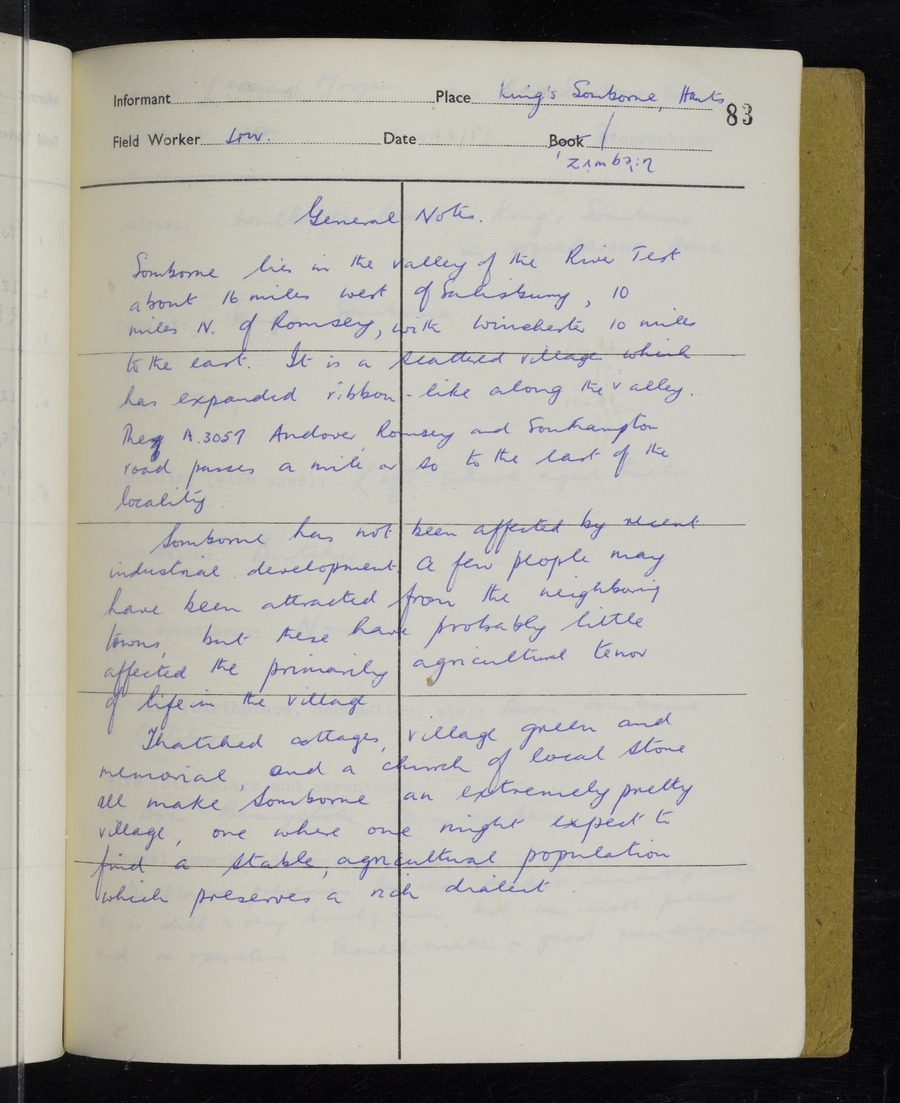 Informant Place King's Somborne, Hants
83
Field Worker Low. Date Book /
General Notes.
Somborne lies in the valley of the River Test
about 16 miles west of Salisbury, 10
miles N. of Romsey, with Winchester 10 miles
to the east. It is a scattered village which
has expanded ribbon-like along the valley.
The A.3057 Andover, Romsey and Southampton
road passes a mile or so to the east of the
locality
Somborne has not been affected by recent
industrial development. A few people may
have been attracted from the neighbouring
towns, but these have probably little
affected the primarily agricultural tenor
of life in the village
Thatched cottages, village green and
memorial, and a church of local stone
all make Somborne an extremely pretty
village, one where one might expect to
find a stable, agricultural population
which preserves a rich dialect.